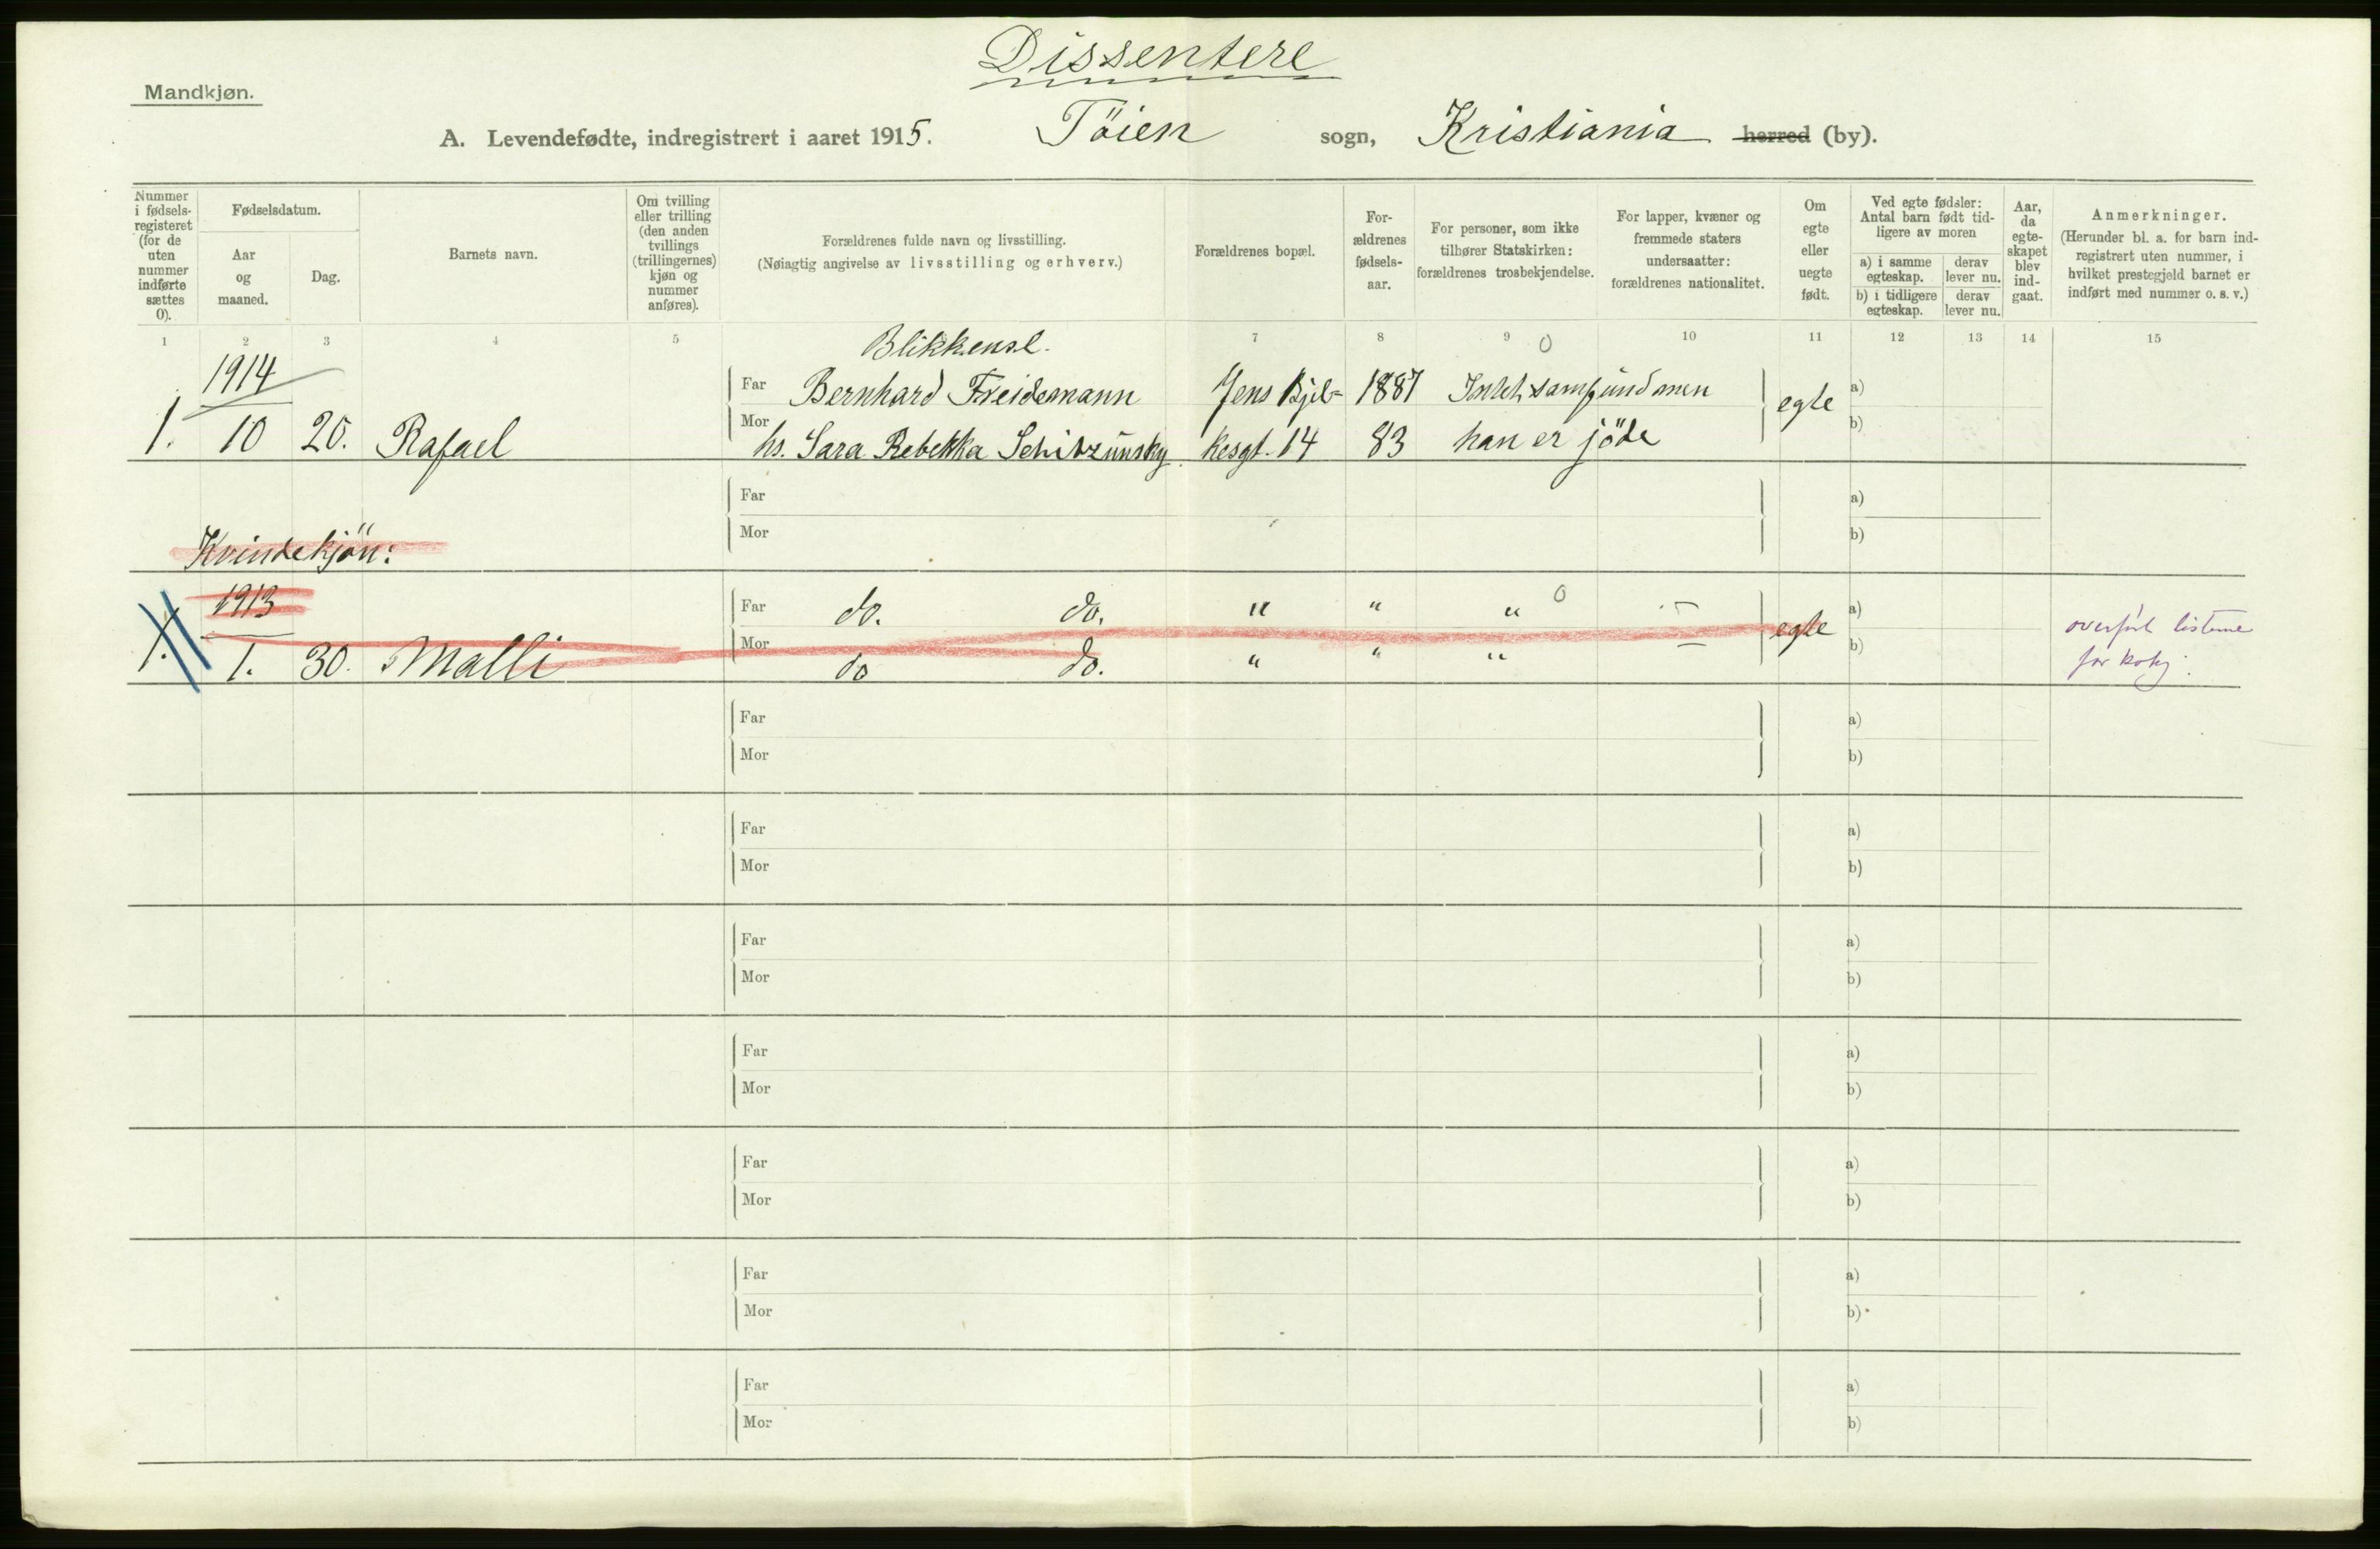 Dissentere
Mandkjøn.
A. Levendefødte, indregistrert i aaret 1915. Töien sogn, Kristiania herred (by).
Nummer i fødsels-registeret (for de uten nummer indførte sættes 0).
Fødselsdatum.
Aar og maaned.
Dag.
Barnets navn.
Om tvilling eller trilling (den anden tvillings (trillingernes) kjøn og nummer anføres).
Forældrenes fulde navn og livsstilling.
(Nøiagtig angivelse av livsstilling og erhverv.)
Forældrenes bopæl.
For-ældrenes fødsels-aar.
For personer, som ikke tilhører Statskirken: forældrenes trosbekjendelse.
For lapper, kvæner og fremmede staters undersaatter: forældrenes nationalitet.
Om egte eller uegte født.
Ved egte fødsler: Antal barn født tid-ligere av moren
a) i samme egteskap. derav lever nu.
b) i tidligere egteskap. derav lever nu.
Aar, da egte-skapet blev ind-gaat.
Anmerkninger.
(Herunder bl. a. for barn ind-registrert uten nummer, i hvilket prestegjeld barnet er indført med nummer o. s. v.)
1 2 3 4 5 7 8 9 10 11 12 13 14 15
Blikkensl. 0
1914
Far Bernhard Freidemann Jens Bjel- 1887 Intet samfund men a)
1. 10 20. Rafael Mor hs. Sara Rebekka kesgt. 14 83 han er jöde egte b)
Far a)
Mor b)
Kvindekjön:
1913 Far do. do. " " " 0 — a)
1. 1. 30. Malli Mor do do. " " " — egte b)
overført listerne
for
Far a)
Mor b)
Far a)
Mor b)
Far a)
Mor b)
Far a)
Mor b)
Far a)
Mor b)
Far a)
Mor b)
Far a)
Mor b)